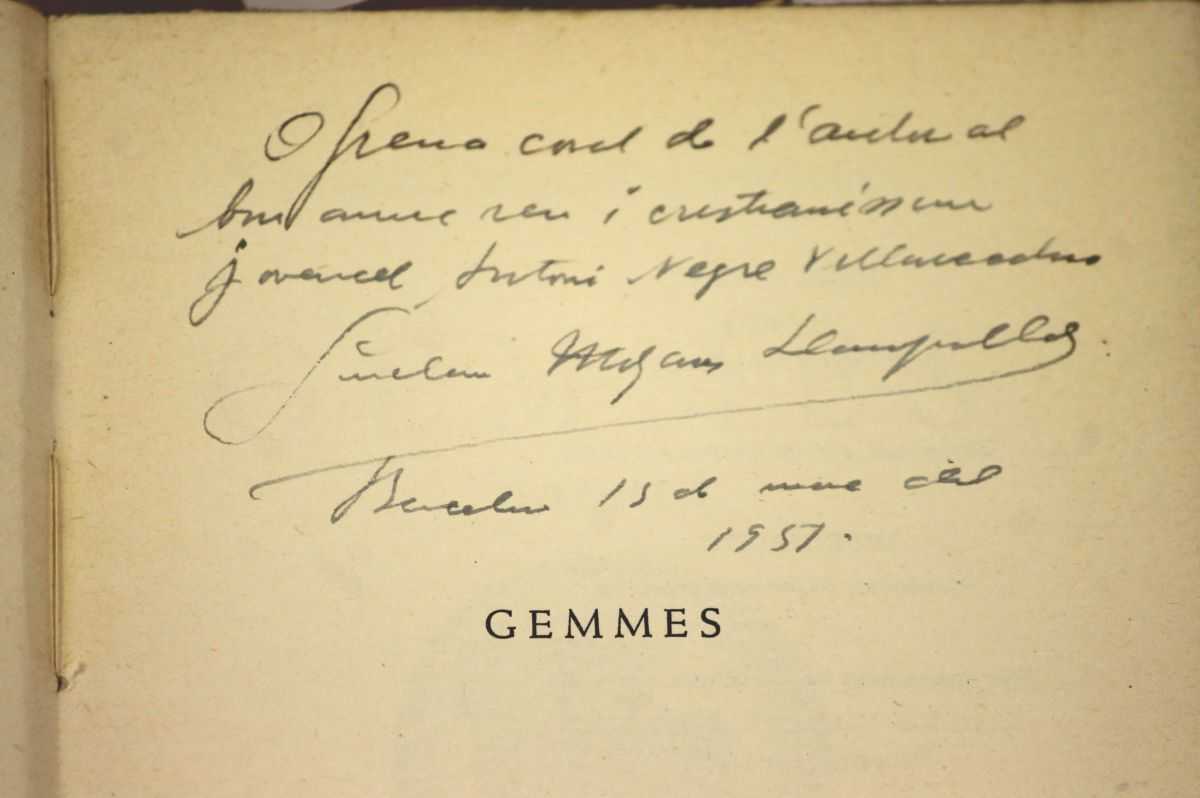 Ofrena coral de l'autor al
bon amic seu i cristianíssim
jovencel Antoni Negre Villavecchia
Llampallas.
Barcelona 15 de març del
1951.
GEMMES